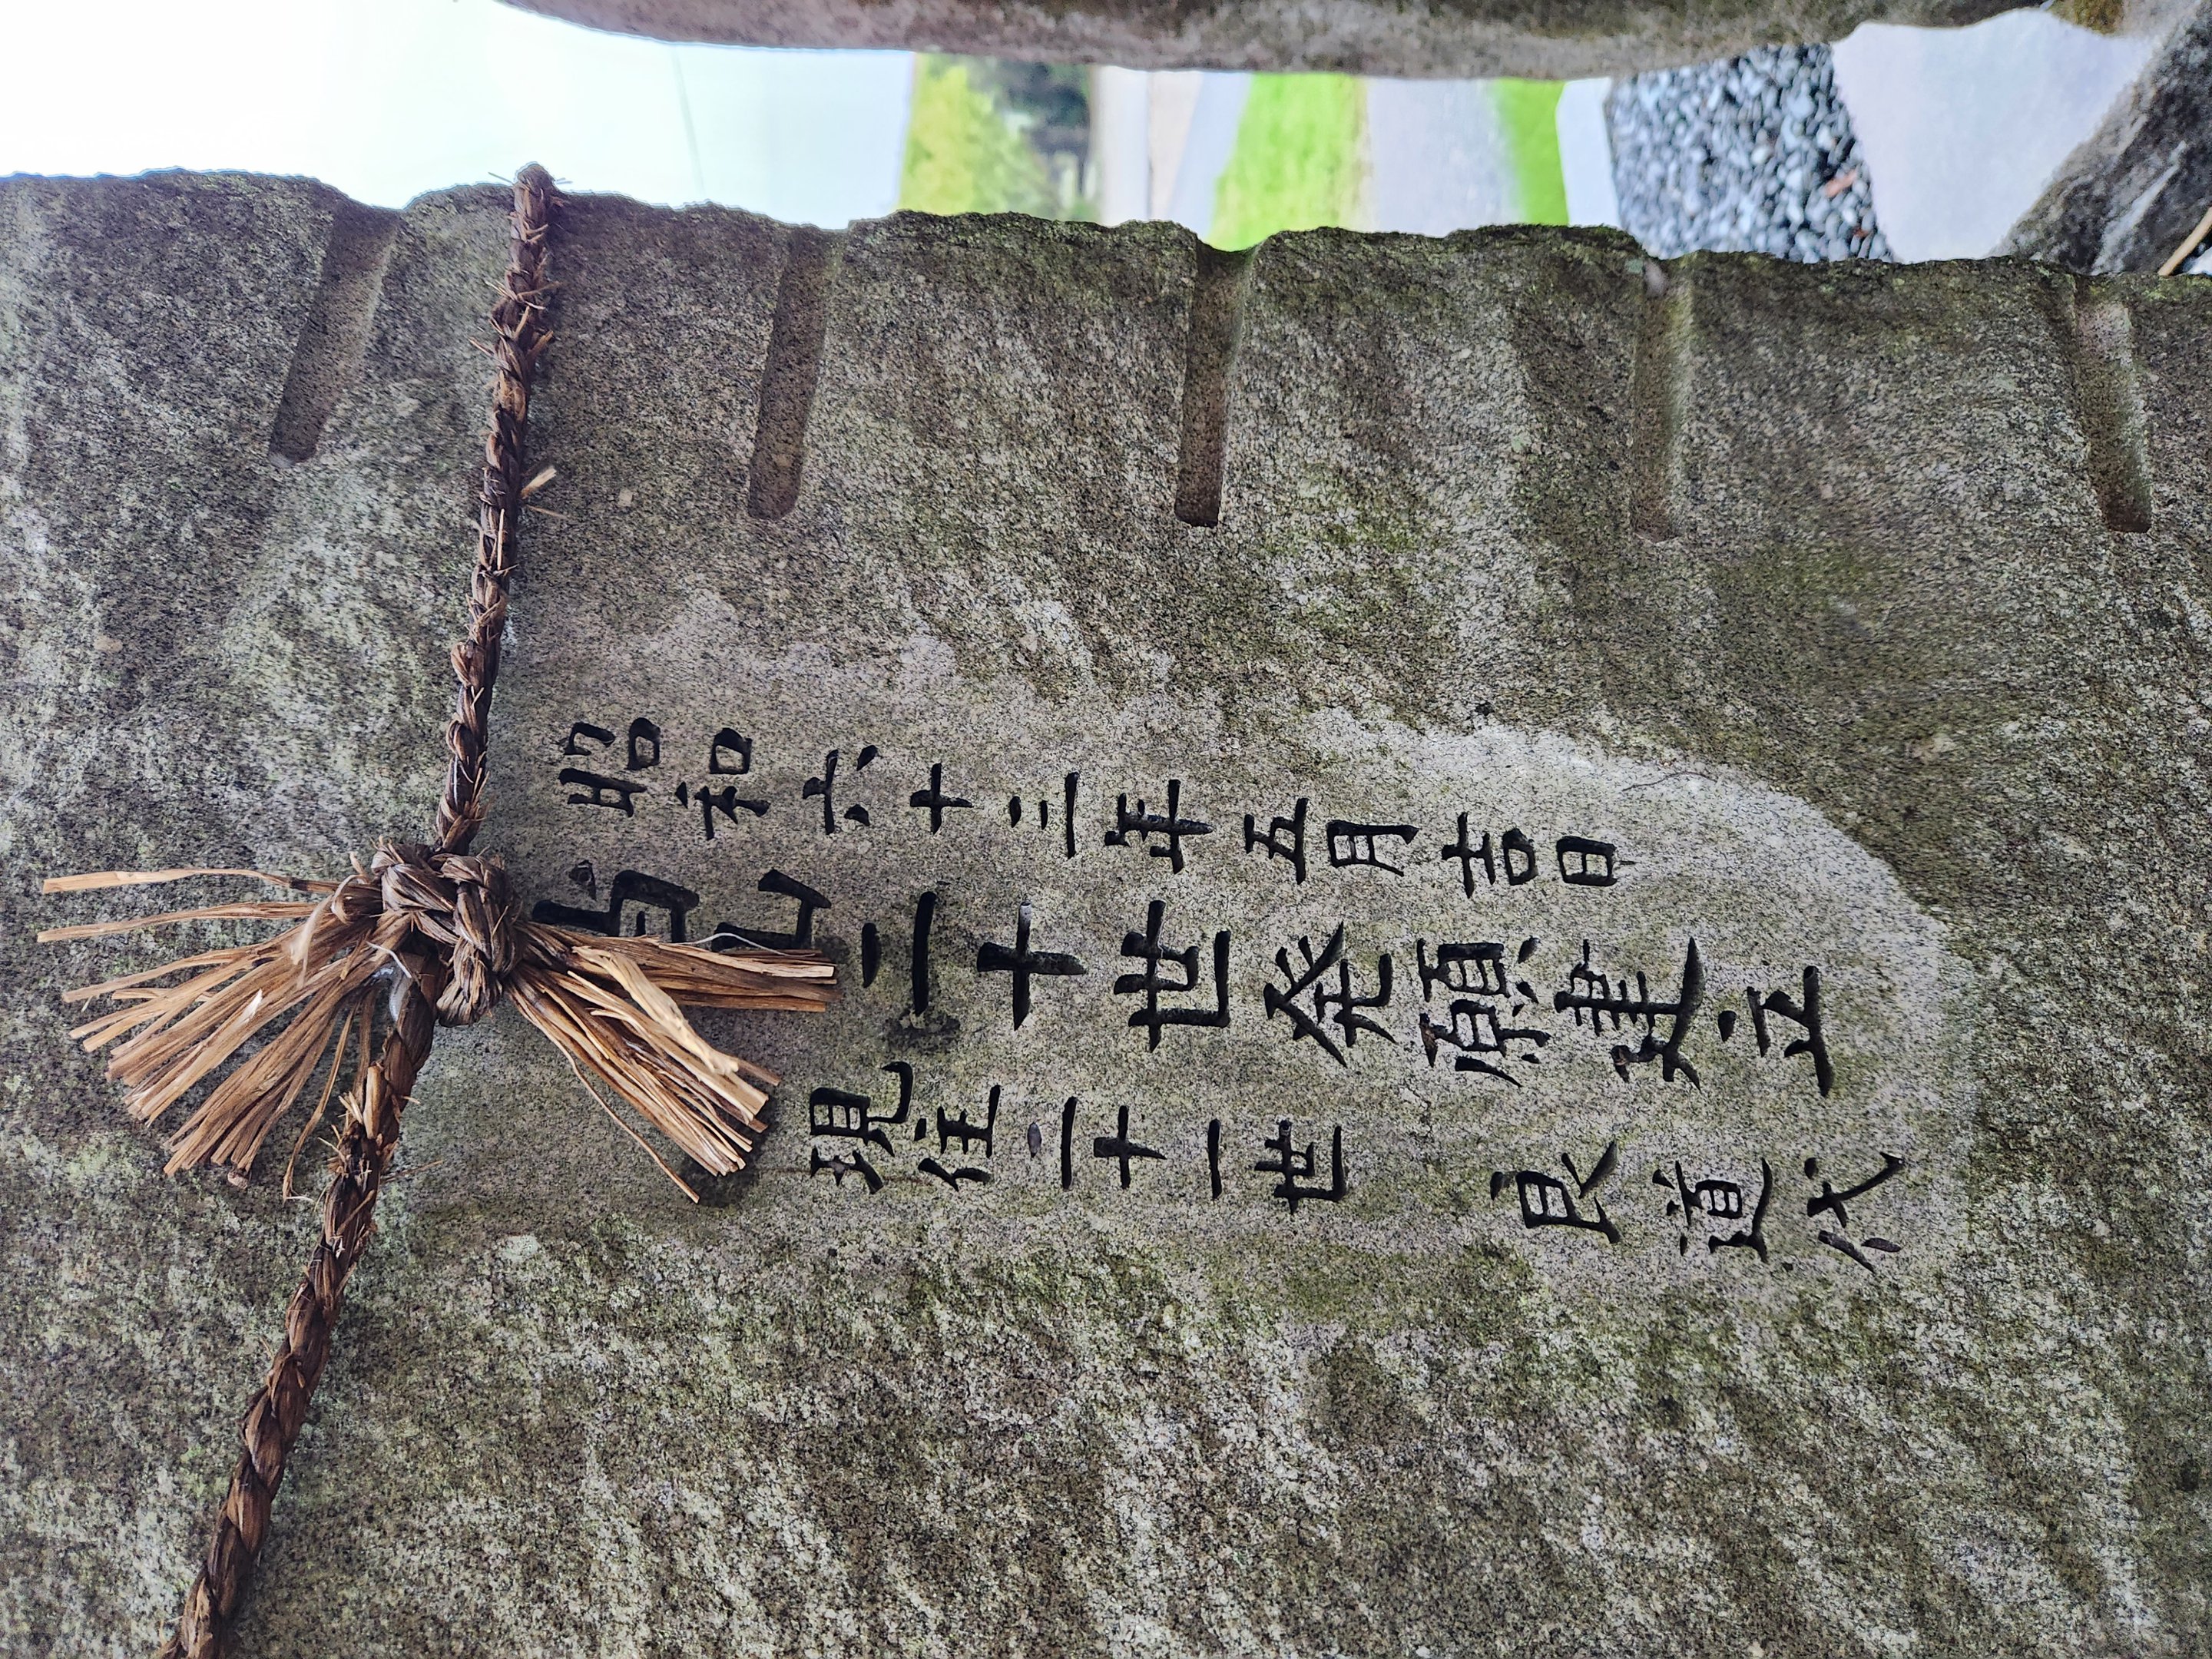 昭和六十三年五月吉日
二十世発願建立
現住二十一世　良道代